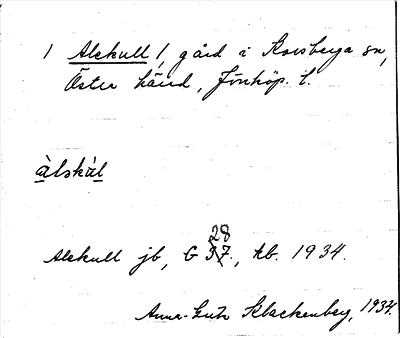 1 Alskull /, gård i Korsberga sn,
Öster härd, Jönköp. l.
àlskàl
Alskull jb, G 28
57., tb. 1934.
Anna-Greta Klackenberg, 1934.